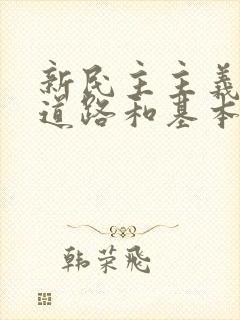 新民主主義
道路和基本
韩荣飛